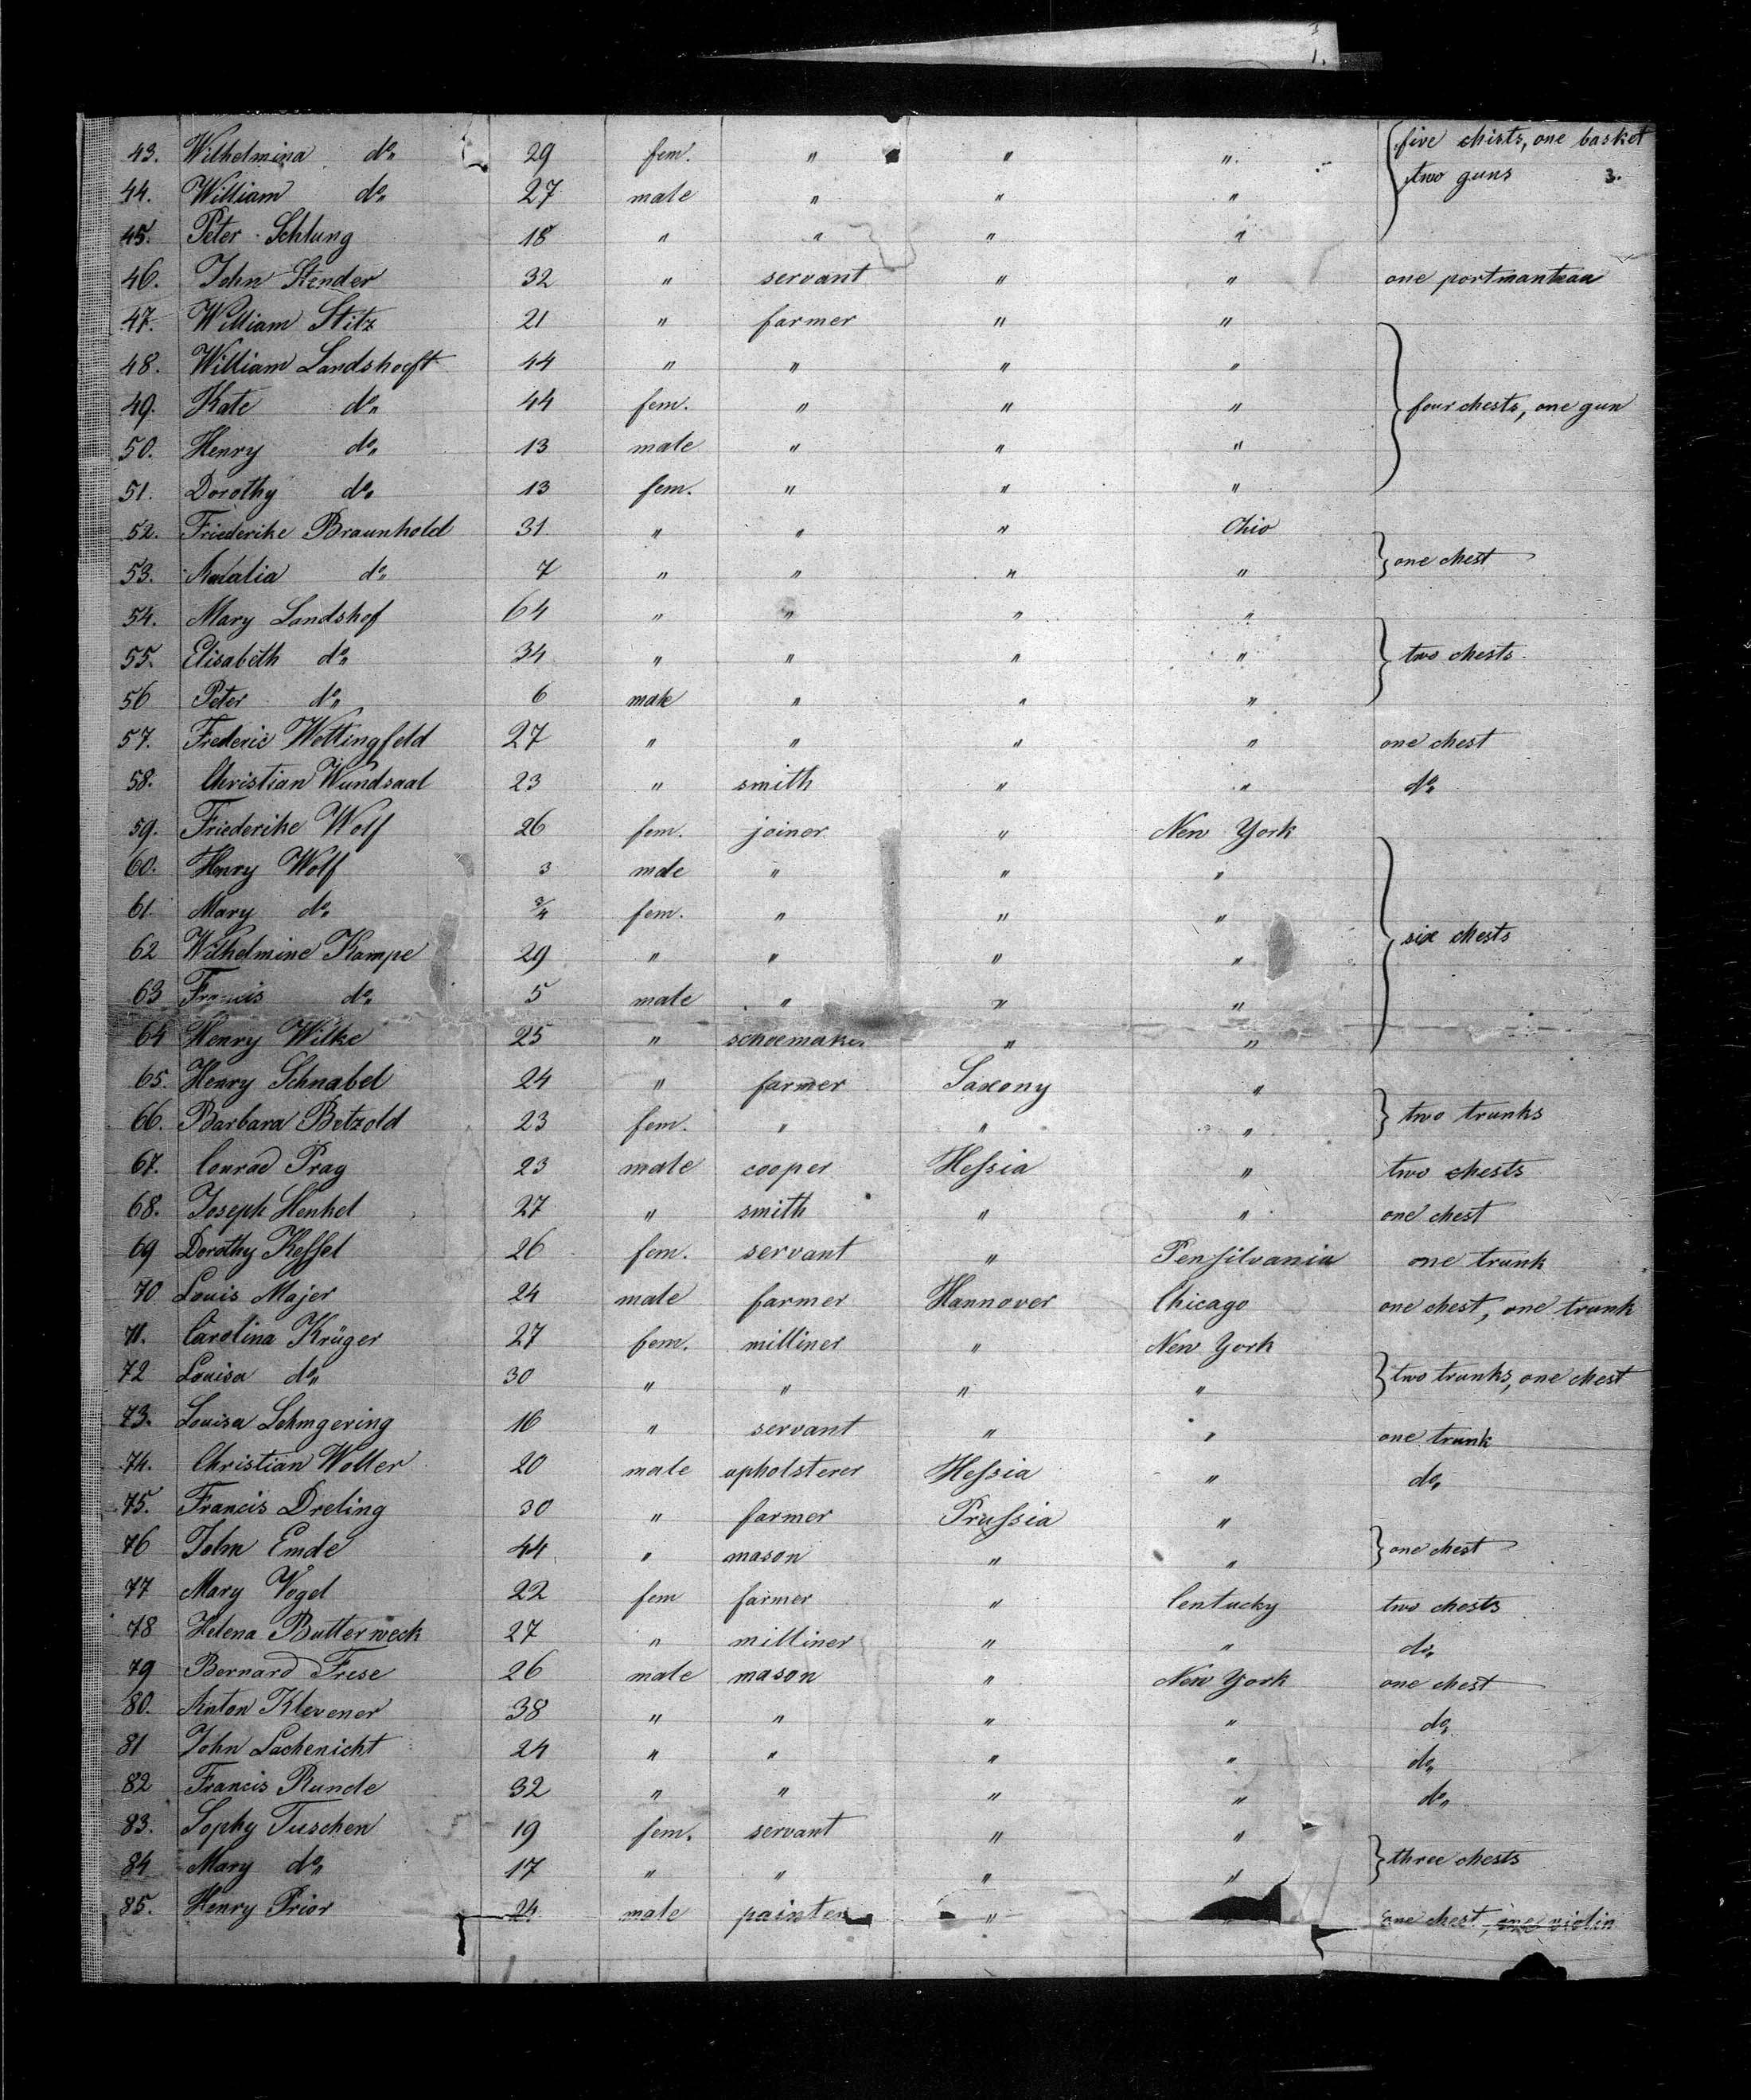 3
1.
43. Wilhelmina do„ 29 fem. „ „ „ five chists, one basket
44. William do„ 27 male „ „ „ two guns 3.
45. Peter Schlung 18 „ „ „ „
46. John Stender 32 „ servant „ „ one portmanteau
47. William Stitz 21 „ farmer „ „
48. William Landshooft 44 „ „ „ „
49. Kate do„ 44 fem. „ „ „ four chests, one gun
50. Henry do„ 13 male „ „ „
51. Dorothy do„ 13 fem. „ „ „
52. Friederike Braunhold 31 „ „ „ Ohio
53. Amalia do„ 7 „ „ „ „ one chest
54. Mary Landshof 64 „ „ „ „
55. Elisabeth do„ 34 „ „ „ „ two chests
56 Peter do„ 6 male „ „ „
57. Frederic Wettingfeld 27 „ „ „ „ one chest
58. Christian Wundsaal 23 „ smith „ „ do„
59. Friederike Wolf 26 fem. joiner „ New York
60. Henry Wolf 3 male „ „ „
61. Mary do„ 3/4 fem. „ „ „
62 Wilhelmine Kampe 29 „ „ „ „ six chests
63 Francis do„ 5 male „ „ „
64 Henry Wilke 25 „ schoemaker „ „
65. Henry Schnabel 24 „ farmer Saxony „
66. Barbara Betzold 23 fem. „ „ „ two trunks
67. Conrad Prag 23 male cooper Heſsia „ two chests
68. Joseph Henkel 27 „ smith „ „ one chest
69 Dorothy Keſsel 26 fem. servant „ Penſilvania one trunk
70 Louis Majer 24 male farmer Hannover Chicago one chest, one trunk
71. Carolina Krüger 27 fem. milliner „ New York
72 Louisa do„ 30 „ „ „ „ two trunks, one chest
73. Louisa Lehmgering 16 „ servant „ „ one trunk
74. Christian Wolter 20 male upholsterer Heſsia „ do„
75. Francis Dreling 30 „ farmer Pruſsia „
76 John Emde 44 „ mason „ „ one chest
77 Mary Vogel 22 fem farmer „ Centucky two chests
78 Helena Butterweck 27 „ milliner „ „ do„
79 Bernard Frese 26 male mason „ New York one chest
80. Anton Klevener 38 „ „ „ „ do„
81 John Lachenicht 24 „ „ „ „ do„
82 Francis Runde 32 „ „ „ „ do„
83. Sophy Tuschen 19 fem. servant „ „
84 Mary do„ 17 „ „ „ „ three chests
85. Henry Prior 24 male painter „ one chest, one violin